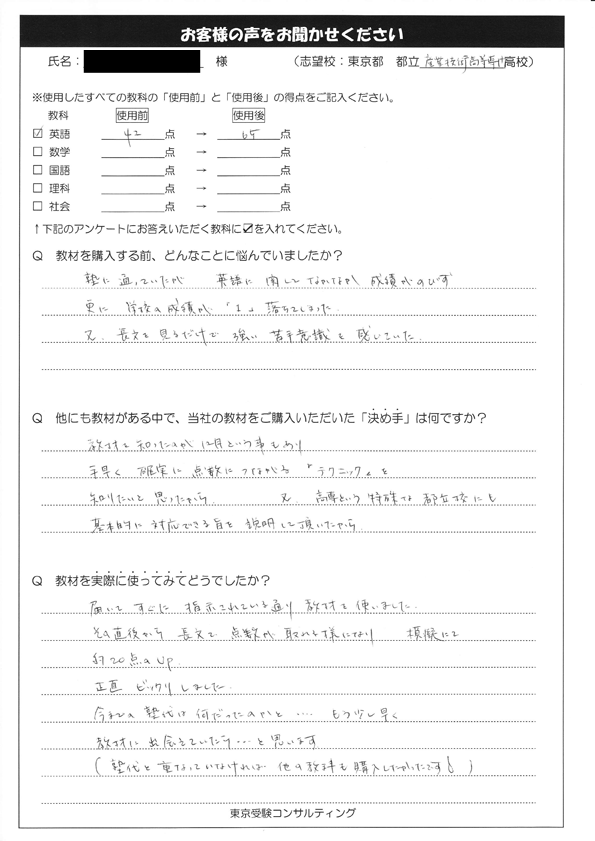 お客様の声をお聞かせください
氏名： 様 （志望校：東京都 都立 産業技術高等専門高校）
※使用したすべての教科の「使用前」と「使用後」の得点をご記入ください。
教科 使用前 使用後
☑ 英語 42 点 → 65 点
□ 数学 点 → 点
□ 国語 点 → 点
□ 理科 点 → 点
□ 社会 点 → 点
↑下記のアンケートにお答えいただく教科に☑を入れてください。
Q 教材を購入する前、どんなことに悩んでいましたか？
塾に通っていたが 英語に関してなかなか成績がのびず
更に 学校の成績が「1」落ちてしまった．
又、長文を見るだけで 強い苦手意識を感じていた．
Q 他にも教材がある中で、当社の教材をご購入いただいた「決め手」は何ですか？
教材を知ったのが 12月という事もあり
手早く 確実に点数につながる『テクニック』を
知りたいと思ったから 又、高専という特殊な都立校にも
基本的に対応できる旨を説明して頂いたから
Q 教材を実際に使ってみてどうでしたか？
届いて すぐに 指示されている通り 教材を使いました．
その直後から 長文で 点数が 取れる様になり 模擬にて
約20点のUp．
正直 ビックリしました．
今までの塾代は何だったのかと…． もう少し早く
教材に出会えていたら…と思います
（塾代と重なっていなければ 他の教科も購入したかったです！）
東京受験コンサルティング